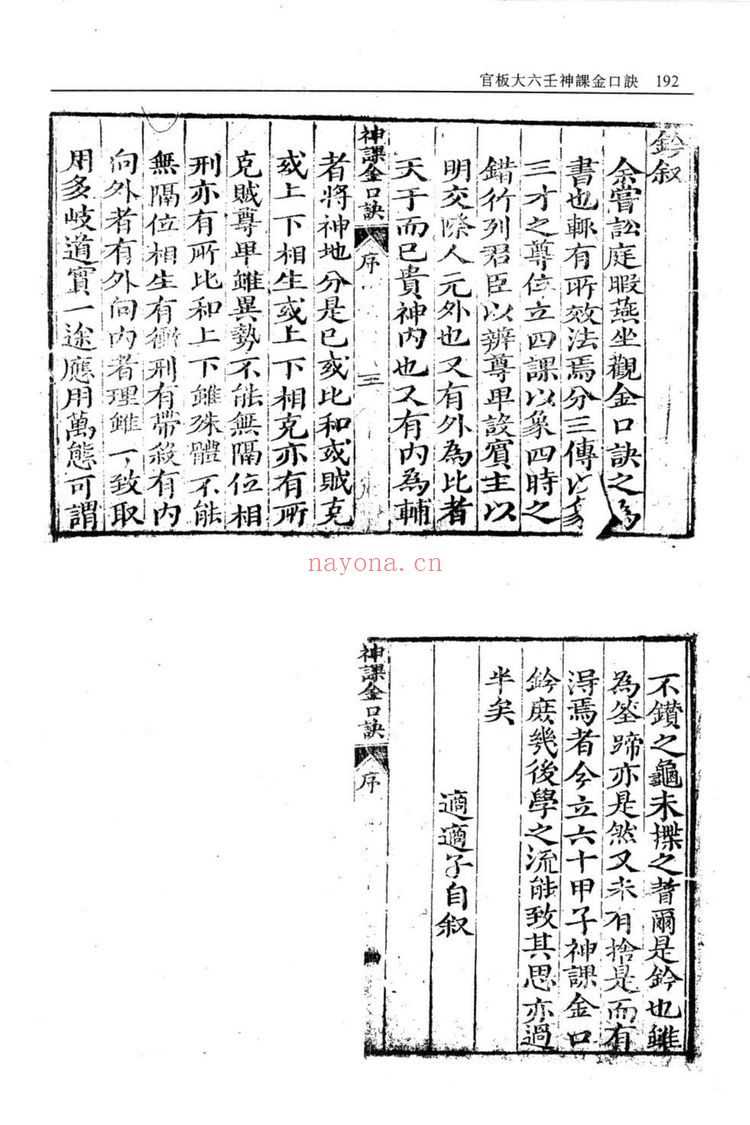 官板大六壬神課金口訣 192
鈐叙
余嘗訟庭暇燕坐觀金口訣之為
書也輒有所效法焉分三傳以象
三才之尊位立四課以象四時之
錯行列君臣以辨尊卑設賓主以
明交際人元外也又有外為比者
天干而已貴神内也又有内為輔
神課金口訣 序 三
者將神地分是已或比和或賊克
或上下相生或上下相克亦有所
克賊尊卑雖異勢不能無隔位相
刑亦有所比和上下雖殊體不能
無隔位相生有衝刑有帶殺有内
向外者有外向内者理雖一致取
用多岐道實一途應用萬態可謂
nayona.cn
不鑽之龜未揲之蓍爾是鈐也雖
為筌蹄亦是然又未有捨是而有
得焉者今立六十甲子神課金口
鈐庶幾後學之流能致其思亦過
半矣
適適子自叙
神課金口訣 序